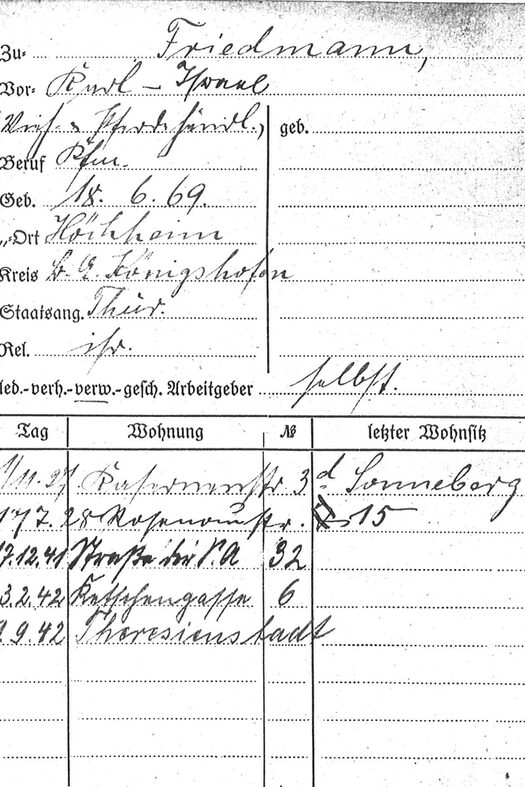 Zu- Friedmann,
Vor- Karl – Israel
Vieh- & Pferdehändl., geb.
Beruf Kfm.
Geb. 18. 6. 69.
„-Ort Höchheim
Kreis B. A. Königshofen
Staatsang. Thür.
Rel. isr.
led.-verh.-verw.-gesch. Arbeitgeber selbst.
Tag Wohnung № letzter Wohnsitz
1/11. 27 Kasernenstr 3d Sonneberg
17 7. 28 Rosenaustr. 15
17.12.41 Straße der S.A 32
3.2.42 Ketschengasse 6
9.9.42 Theresienstadt